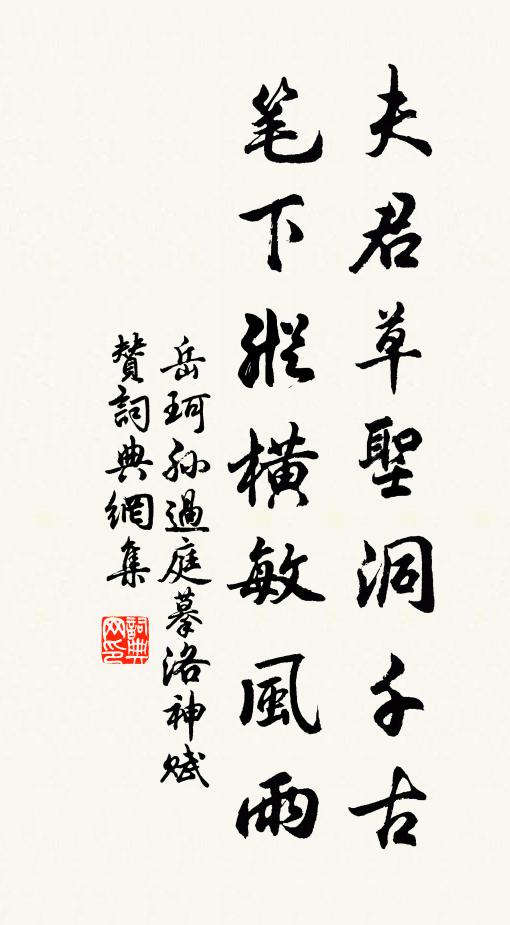 夫君草聖洞千古
笔下縱橫敏風雨
岳珂孫過庭摹洛神賦
贊詞典網集
詞典网印